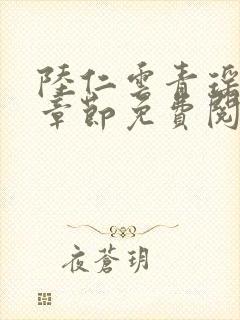 陸仁雲青瑤
章節免費閱
夜蒼玥